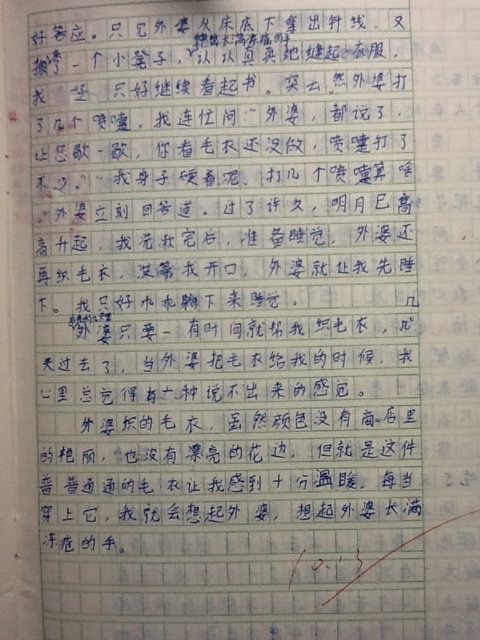 好答应。只见外婆从床底下拿出针线，又
伸出长满冻疮的手
搬了一个小凳子，认认真真地缝起衣服，
我 只好继续看起书。突然外婆打
了几个喷嚏，我连忙问“外婆，都说了，
让您歇一歇，你看毛衣还没做，喷嚏打了
不少。”“我身子硬着呢，打几个喷嚏算啥
。”外婆立刻回答道。过了许久，明月已高
高升起，我洗漱完后，准备睡觉，外婆还
再织毛衣，没等我开口，外婆就让我先睡
下。我只好乖乖躺下来睡觉。
外婆只要一有时间就帮我织毛衣，几
天过去了，当外婆把毛衣给我的时候，我
心里总觉得有一种说不出来的感觉。
外婆织的毛衣，虽然颜色没有商店里
的艳丽，也没有漂亮的花边，但就是这件
普普通通的毛衣让我感到十分温暖。每当
穿上它，我就会想起外婆，想起外婆长满
冻疮的手。
10.13